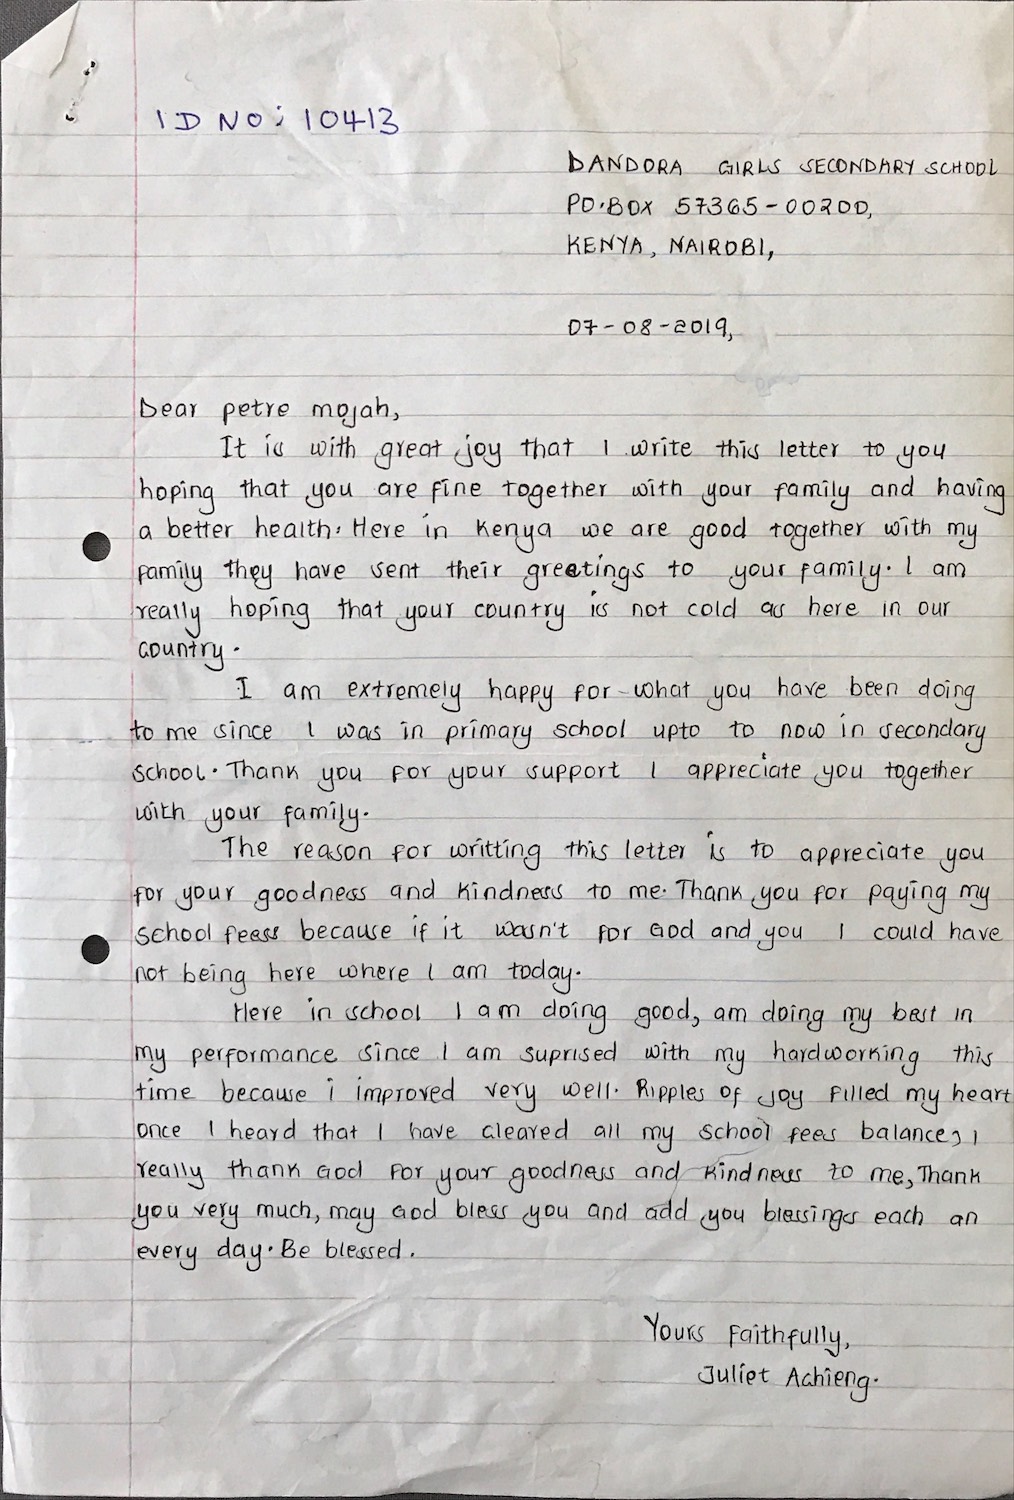 ID NO: 10413
DANDORA GIRLS SECONDARY SCHOOL
PO.BOX 57365-00200,
KENYA, NAIROBI,
07-08-2019,
Dear petre mojah,
It is with great joy that I write this letter to you
hoping that you are fine together with your family and having
a better health. Here in Kenya we are good together with my
family they have sent their greetings to your family. I am
really hoping that your country is not cold as here in our
country.
I am extremely happy for what you have been doing
to me since I was in primary school upto to now in secondary
school. Thank you for your support I appreciate you together
with your family.
The reason for writting this letter is to appreciate you
for your goodness and kindness to me. Thank you for paying my
school feess because if it wasn't for God and you I could have
not being here where I am today.
Here in school I am doing good, am doing my best in
my performance since I am suprised with my hardworking this
time because i improved very well. Ripples of joy filled my heart
once I heard that I have cleared all my school fees balance, I
really thank God for your goodness and kindness to me, Thank
you very much, may God bless you and add you blessings each an
every day. Be blessed.
Yours Faithfully,
Juliet Achieng.